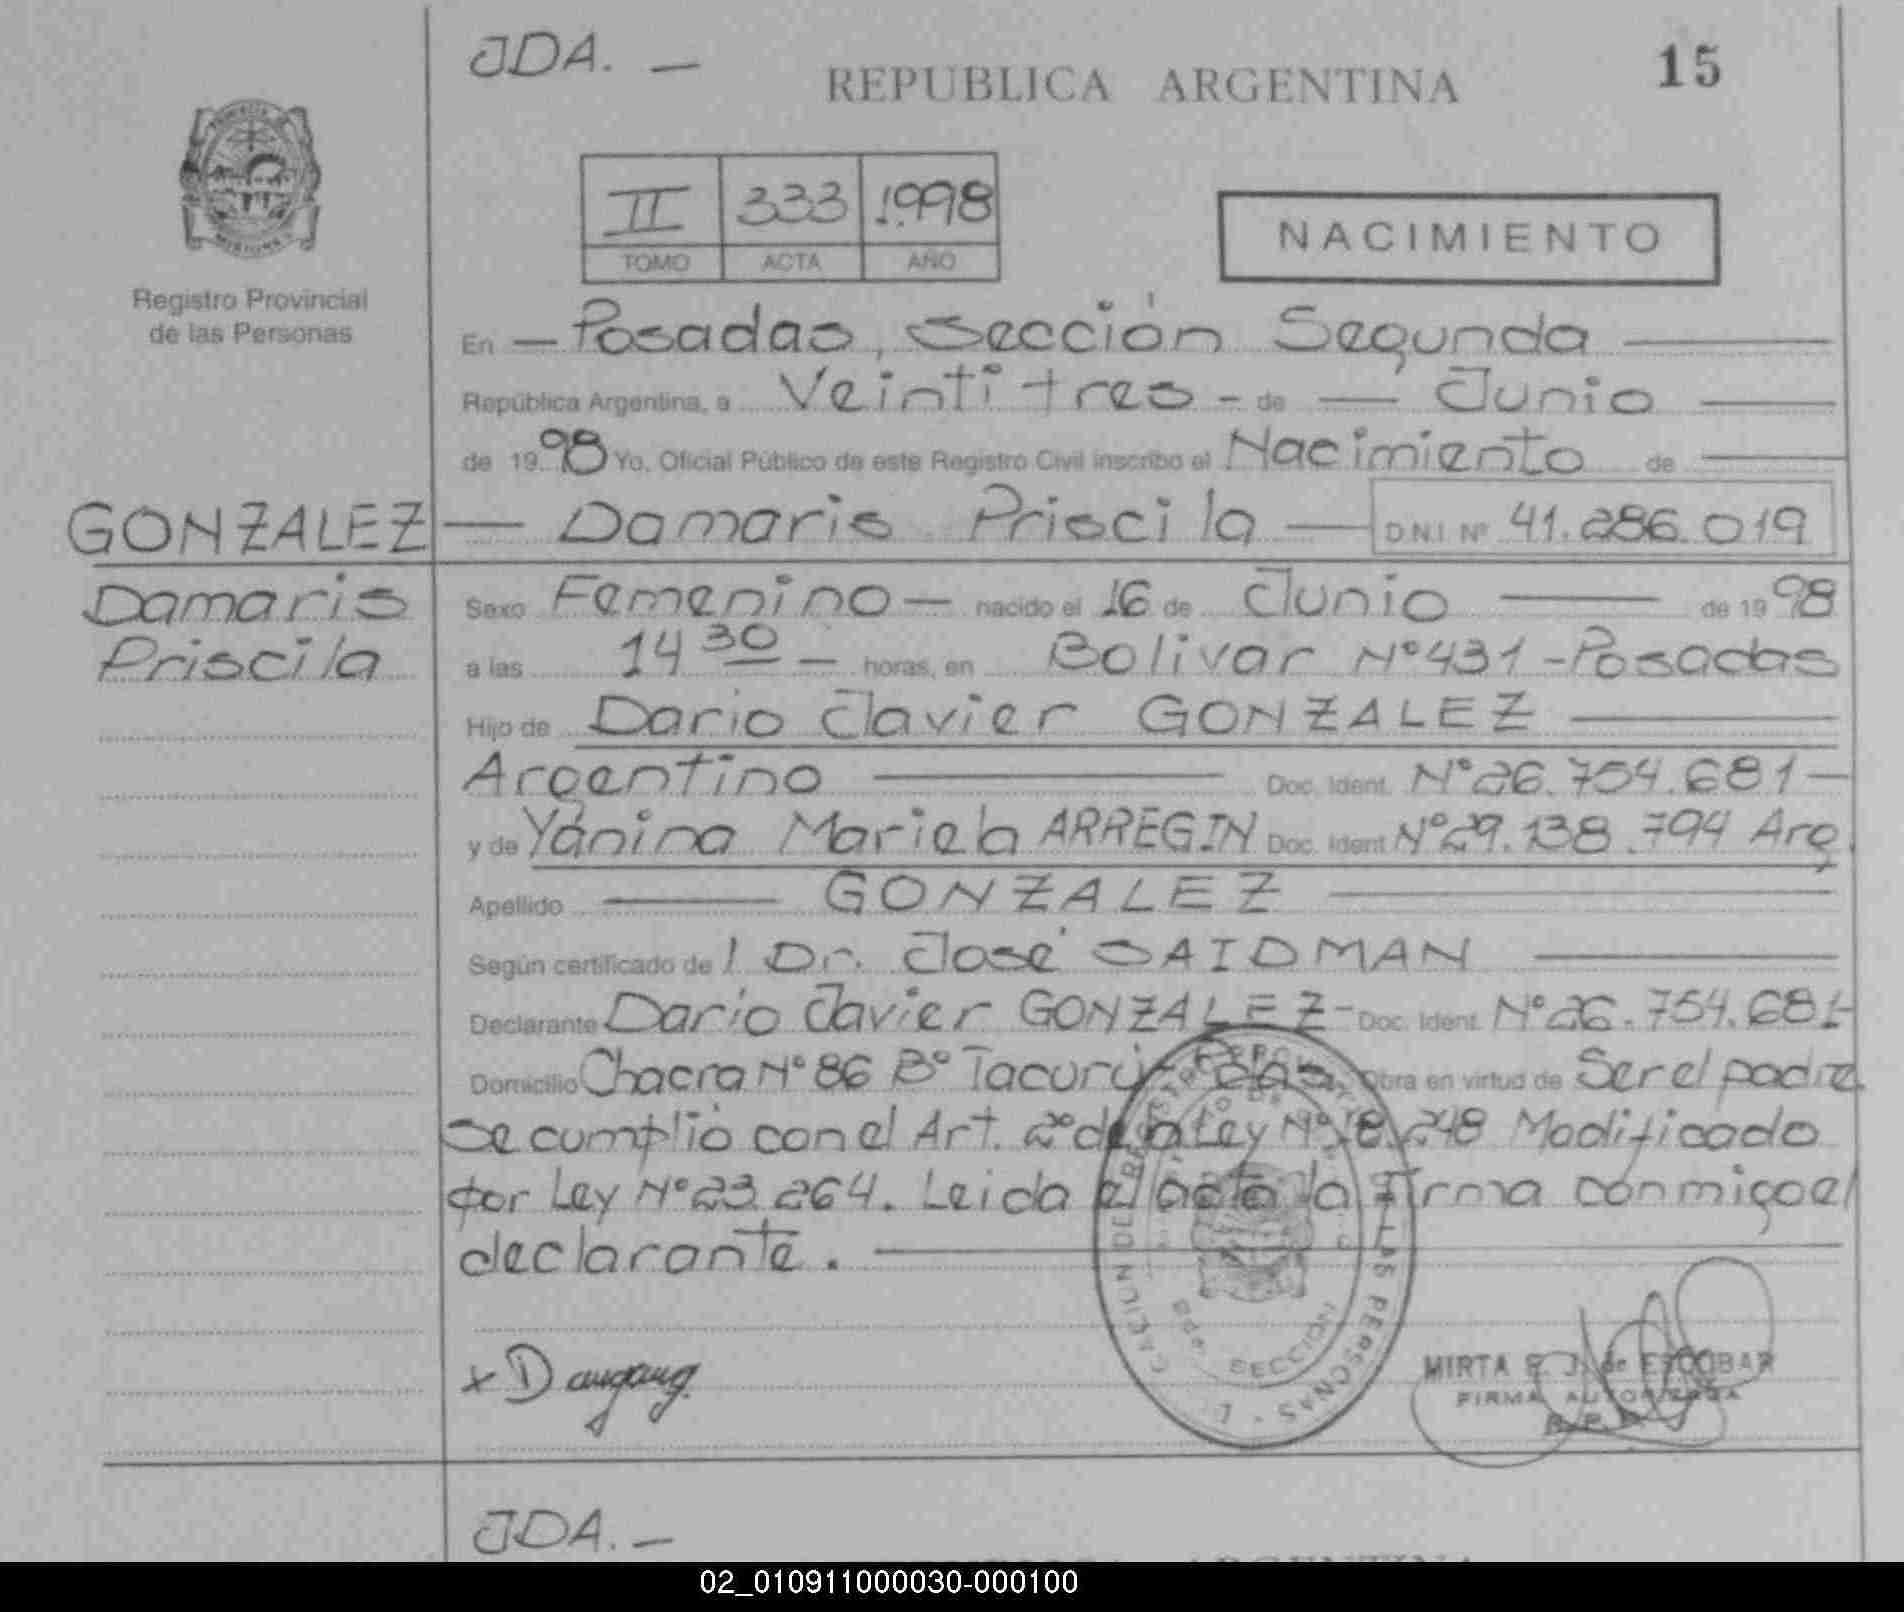 JDA. —
REPUBLICA ARGENTINA
15
II 333 1998
TOMO ACTA AÑO
NACIMIENTO
Registro Provincial
de las Personas
En — Posadas, Sección Segunda —
República Argentina, a Veintitres - de — Junio —
de 1998 Yo, Oficial Público de este Registro Civil inscribo el Nacimiento de —
GONZALEZ — Damaris Priscila — D.N.I. Nº 41.286.019
Damaris
Priscila
Sexo Femenino — nacido el 16 de Junio — de 1998
a las 14 30 — horas, en Bolivar Nº 431 - Posadas
Hijo de Dario Javier GONZALEZ —
Argentino — Doc. Ident. Nº 26.754.681 —
y de Yánina Mariela ARREGIN Doc. Ident Nº 29.138.794 Arg.
Apellido — GONZALEZ —
Según certificado de l Dr. José SAIDMAN —
Declarante Dario Javier GONZALEZ - Doc. Ident. Nº 26.754.681-
Domicilio Chacra Nº 86 Bº Tacurú Obra en virtud de Ser el padre
Se cumplió con el Art. 2º de la Ley Nº 18.248 Modificado
por Ley Nº 23.264. Leida el acta la firma conmigo el
declarante. —
DE LAS PERSONAS
SECCION
MIRTA E. J. de ESCOBAR
FIRMA AUTORIZADA
R.P.P.
JDA. —
02_010911000030-000100